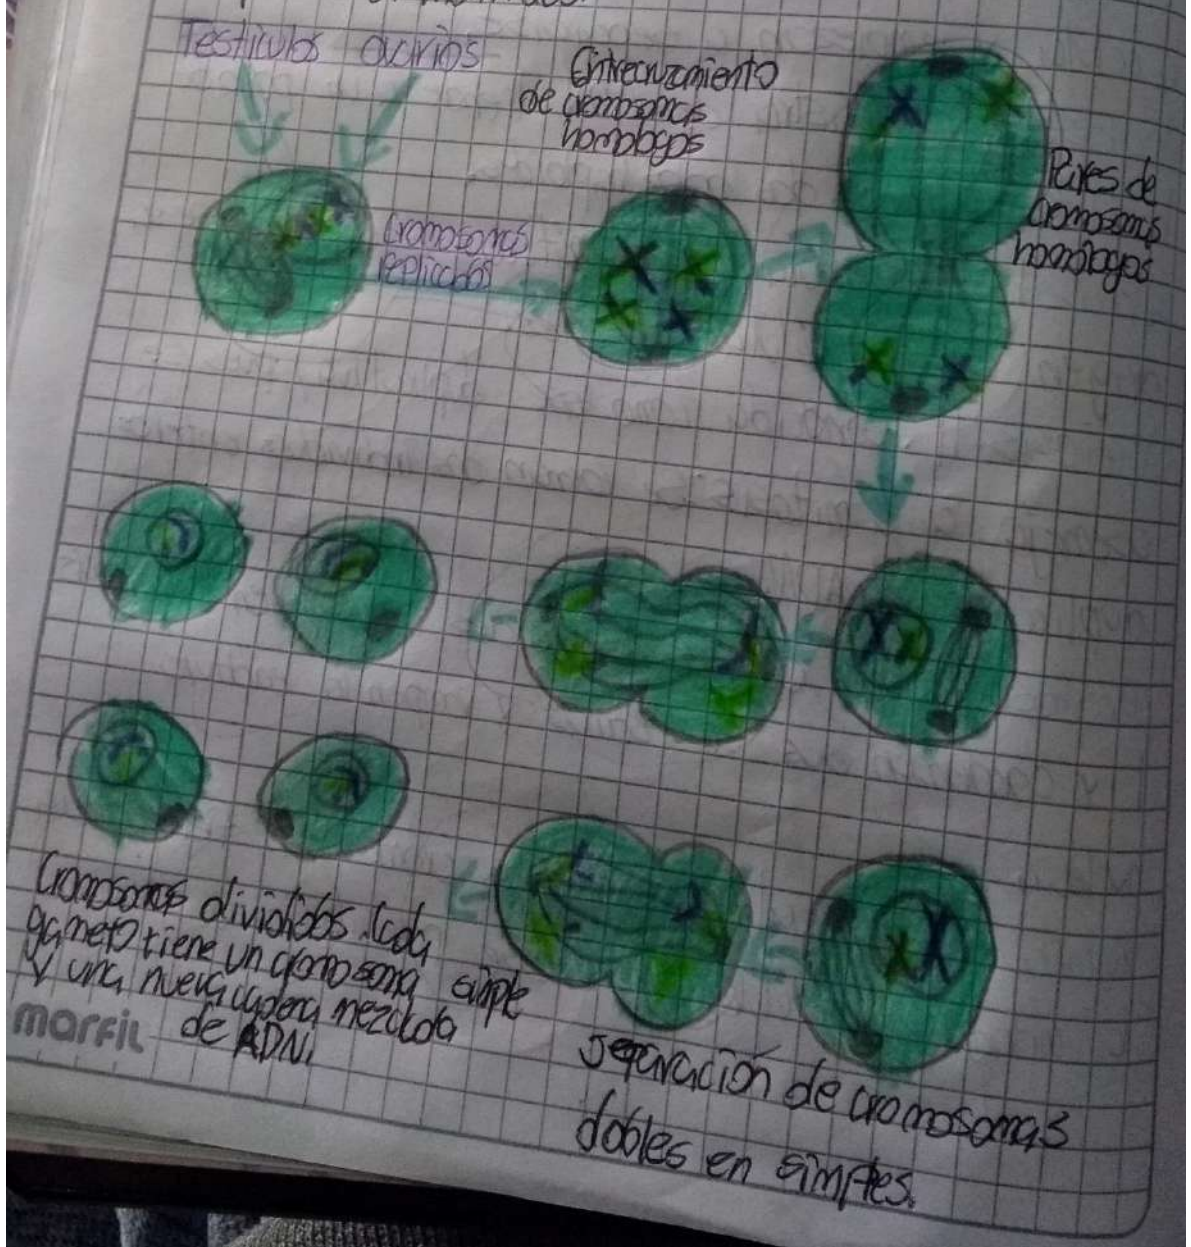 Testiculos ovarios
Entrecruzamiento
de cromosomas
homologos
Pares de
cromosomas
homologos
Cromosomas
replicados
Cromosomas divididos. Cada
gameto tiene un cromosoma simple
y una nueva cadena mezclada
de ADN.
marfil
Separación de cromosomas
dobles en simples.